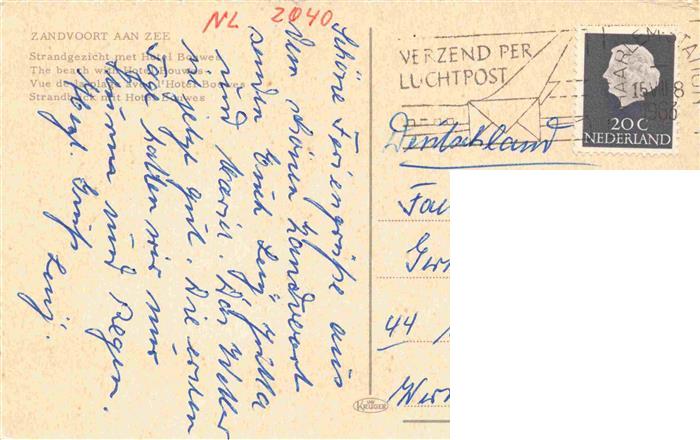 NL 2040
ZANDVOORT AAN ZEE
Strandgezicht met Hotel Bouwes
The beach with Hotel Bouwes
Vue de la plage avec l'Hotel Bouwes
Strandblick mit Hotel Bouwes
Schöne Feriengrüße aus
dem schönen Zandvoort
senden Euch Jutta
und Maria. Das Wetter
ist jetzt gut. Die ersten
Tage hatten wir nur
Sturm und Regen.
Herzl. Grüße
VERZEND PER
LUCHTPOST
HAARLEM
20 C
NEDERLAND
Deutschland
Fa
44
KRÜGER